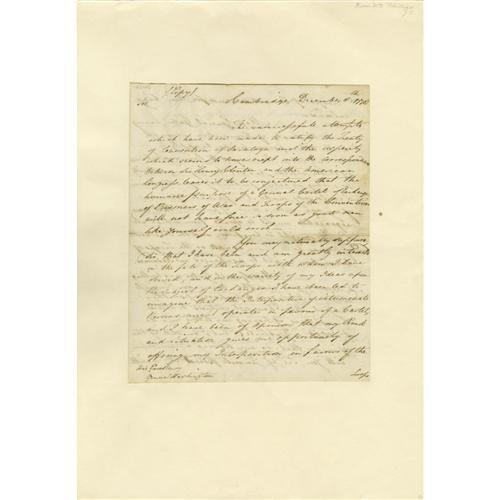 (Copy)
Sir Cambridge, December 8th 1778
The unsuccessful attempts
which have been made to ratify the Treaty
of Convention of Saratoga and the asperity
which seems to have crept into the correspondence
between Sir Henry Clinton and the American
Congress leaves it to be conjectured that the
humane purposes of a General Cartel & Exchange
of Prisoners of War and Troops of the Convention
will not take place so soon as great men
like yourself could wish.
You may naturally suppose
Sir that I have been and am greatly interested
in the fate of the Troops with whom I have
served, and in the variety of my Ideas upon
the subject of Exchange I have been led to
imagine that the Interposition of intermediate
Persons operate in favour of a Cartel,
and I have been of Opinion that my Rank
and situation gives me opportunity of
offering my Interposition in favour of the
His Excellency
Washington Troops